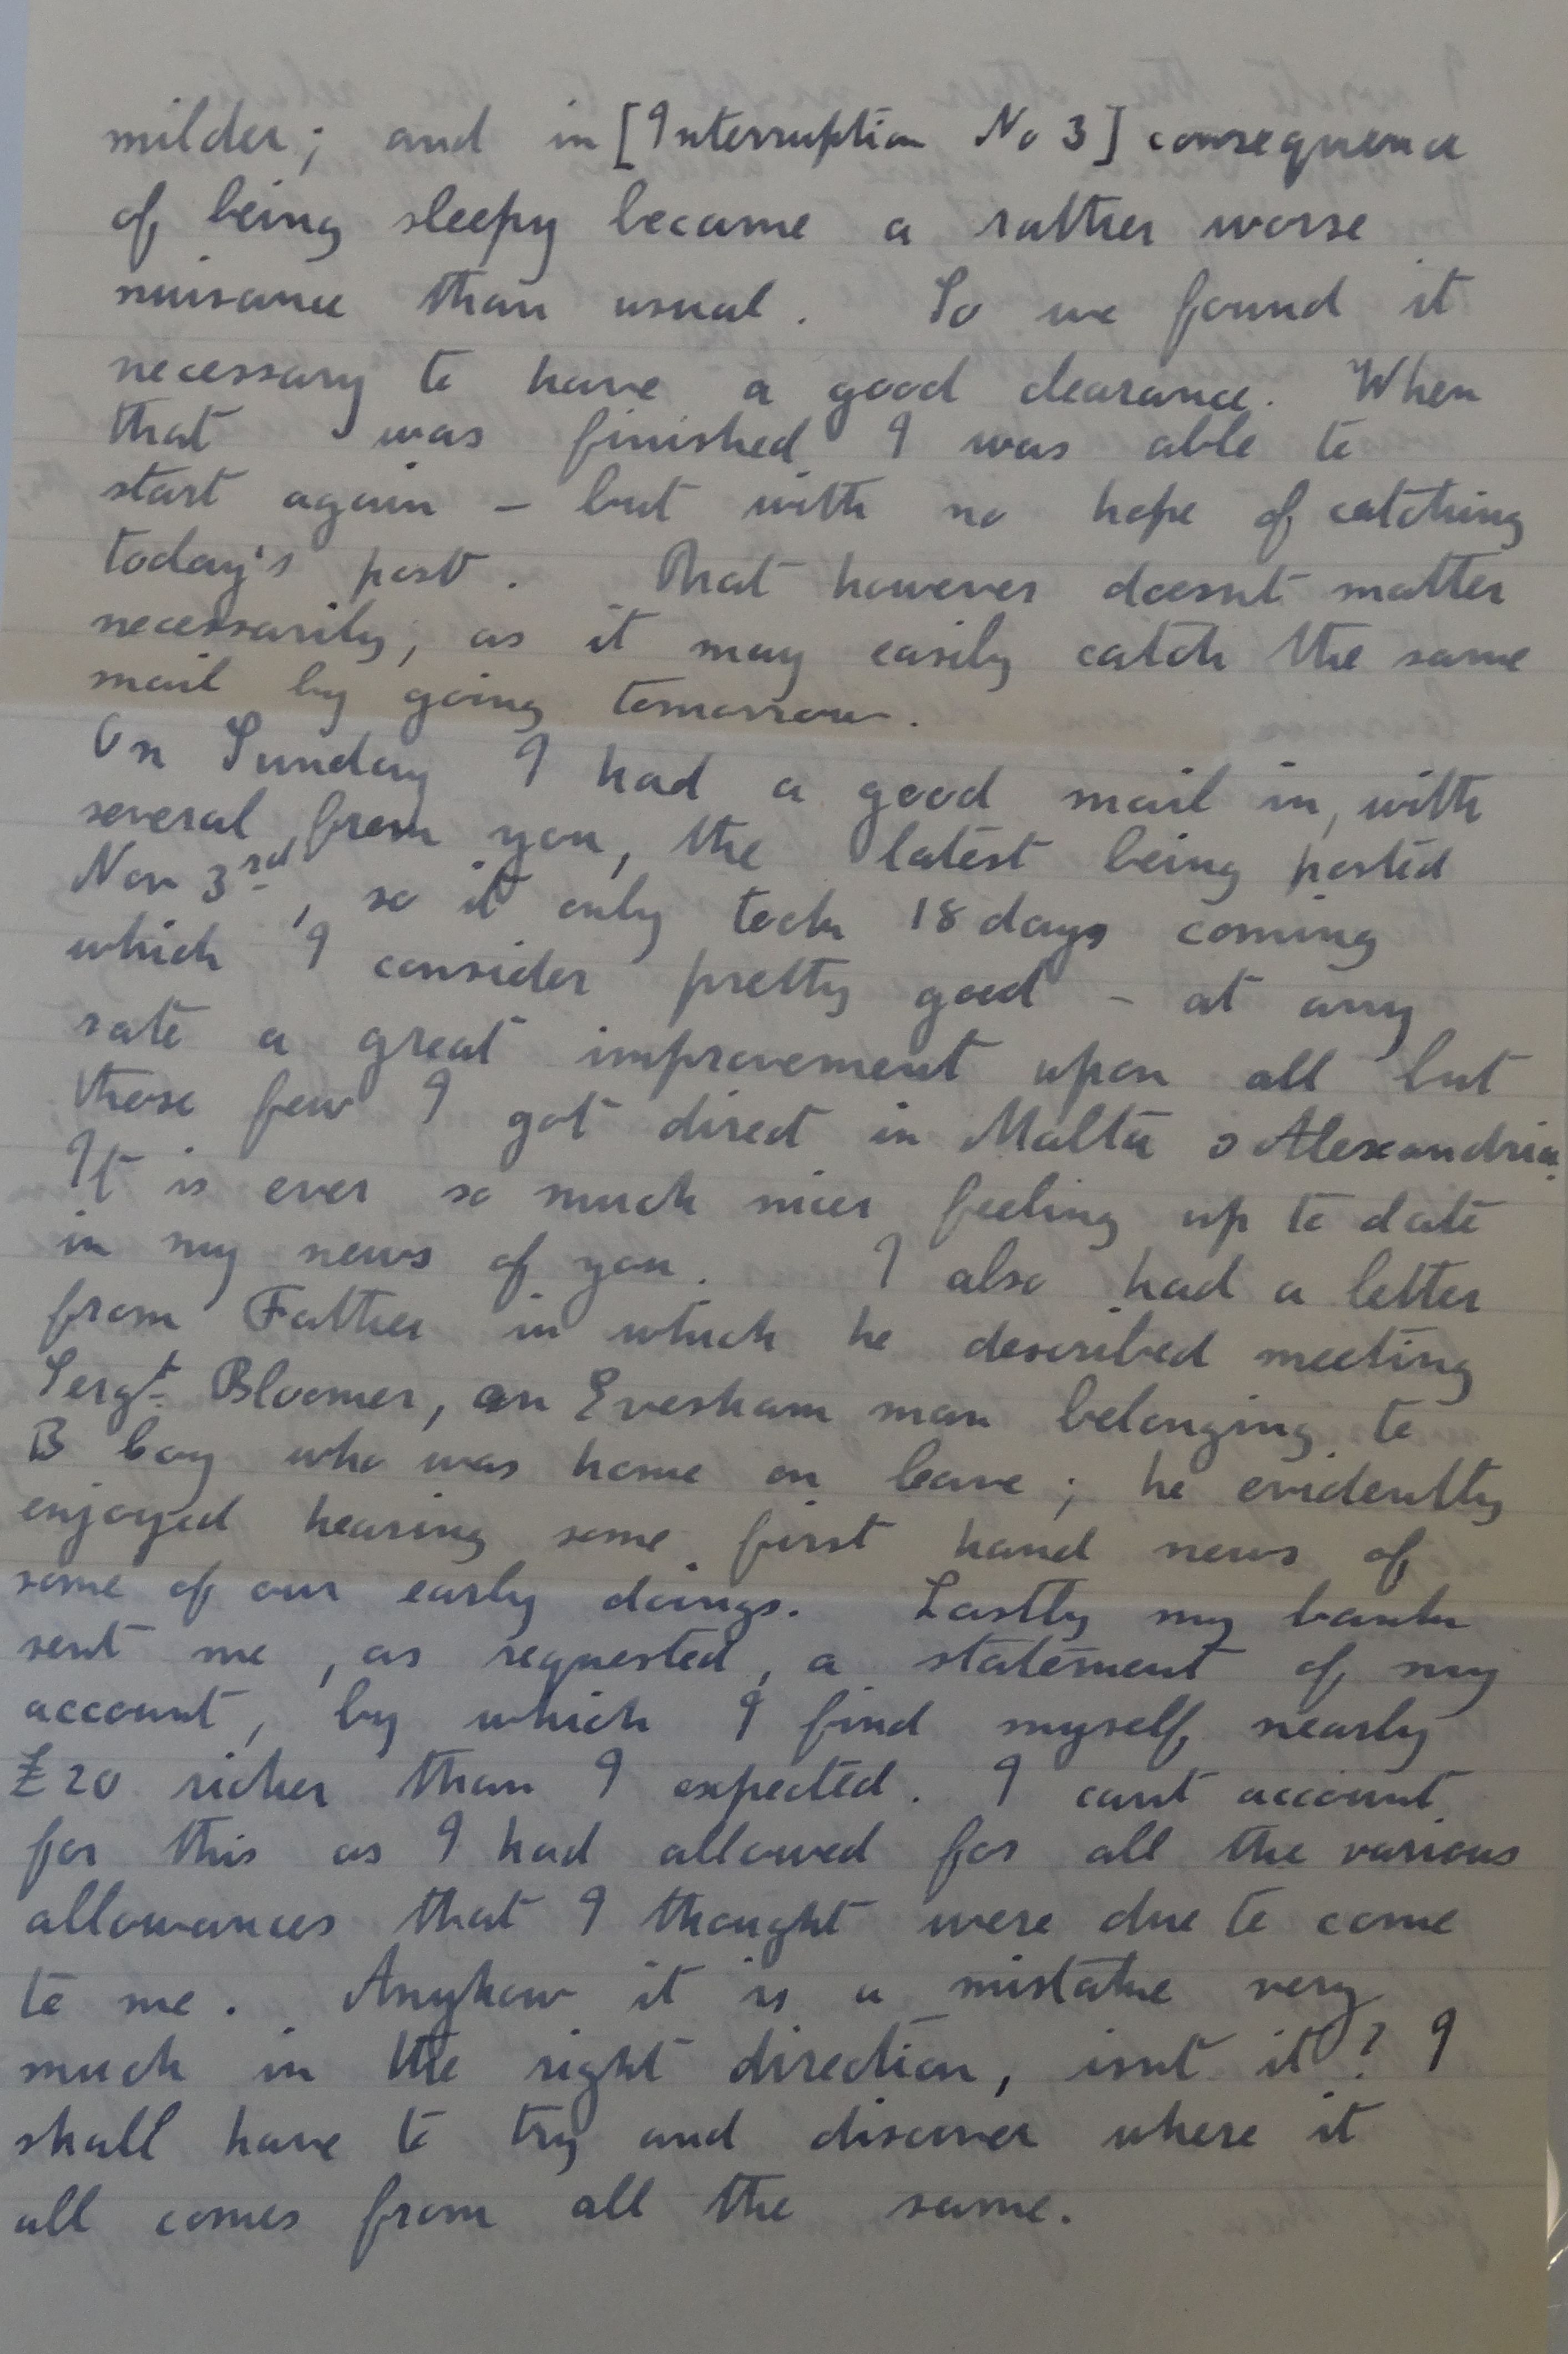 milder; and in [Interruption No 3] consequence
of being sleepy became a rather worse
nuisance than usual. So we found it
necessary to have a good clearance. When
that was finished I was able to
start again – but with no hope of catching
today's post. That however doesnt matter
necessarily, as it may easily catch the same
mail by going tomorrow.
On Sunday I had a good mail in, with
several from you, the latest being posted
Nov 3rd, so it only took 18 days coming
which I consider pretty good – at any
rate a great improvement upon all but
those few I got direct in Malta & Alexandria.
It is ever so much nicer feeling up to date
in my news of you. I also had a letter
from Father in which he described meeting
Sergt. Bloomer, an Evesham man belonging to
B Coy who was home on leave; he evidently
enjoyed hearing some first hand news of
some of our early doings. Lastly my bank
sent me, as requested, a statement of my
account, by which I find myself nearly
£20 richer than I expected. I cant account
for this as I had allowed for all the various
allowances that I thought were due to come
to me. Anyhow it is a mistake very
much in the right direction, isnt it? I
shall have to try and discover where it
all comes from all the same.